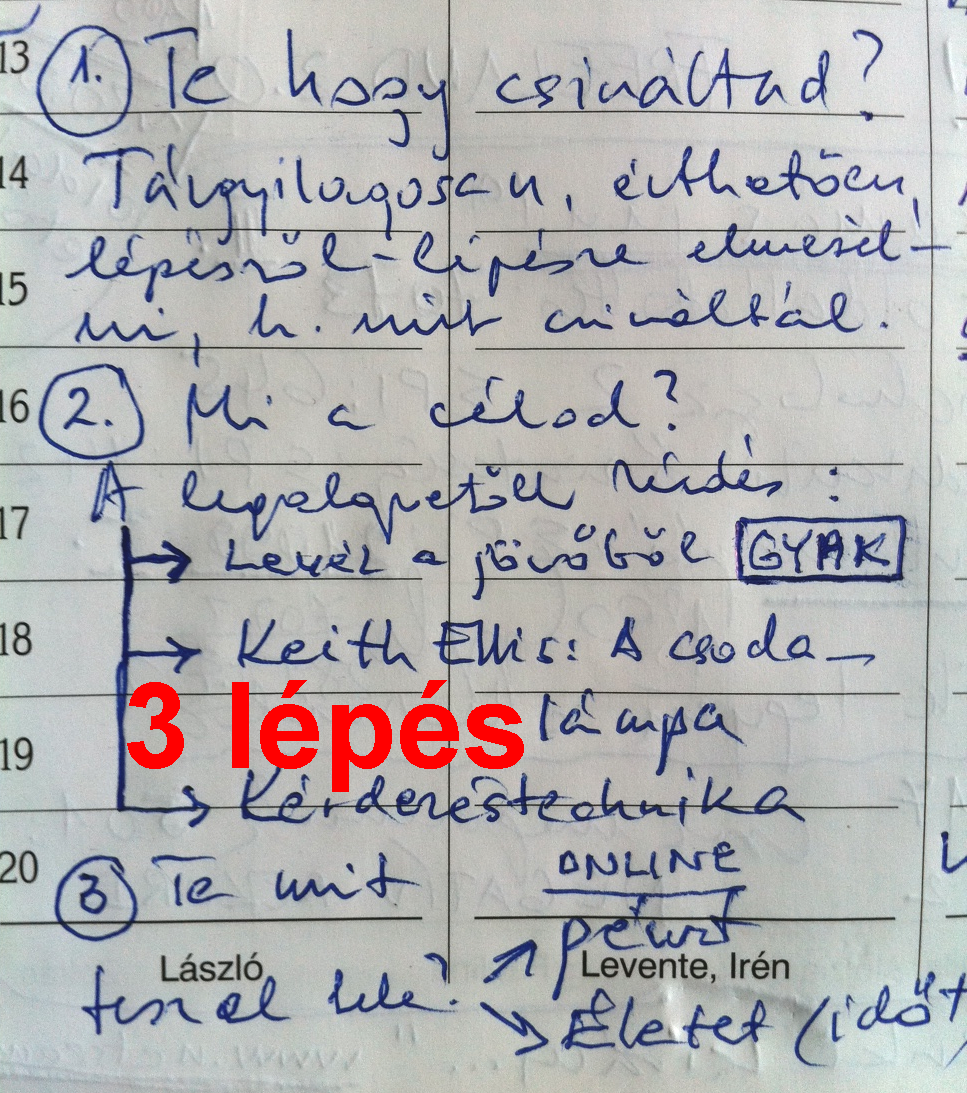 13 1. Te hogy csináltad?
14 Tárgyilagosan, érthetően,
lépésről-lépésre elmesél-
15 ni, h. mit csináltál.
16 2. Mi a célod?
A legalapvetőbb kérdés:
17 Levél a jövőből GYAK
18 Keith Ellis: A csoda-
3 lépés lámpa
19 Kérdezéstechnika
20 3 Te mit ONLINE
pénzt
László Levente, Irén
teszel bele? Életet (időt